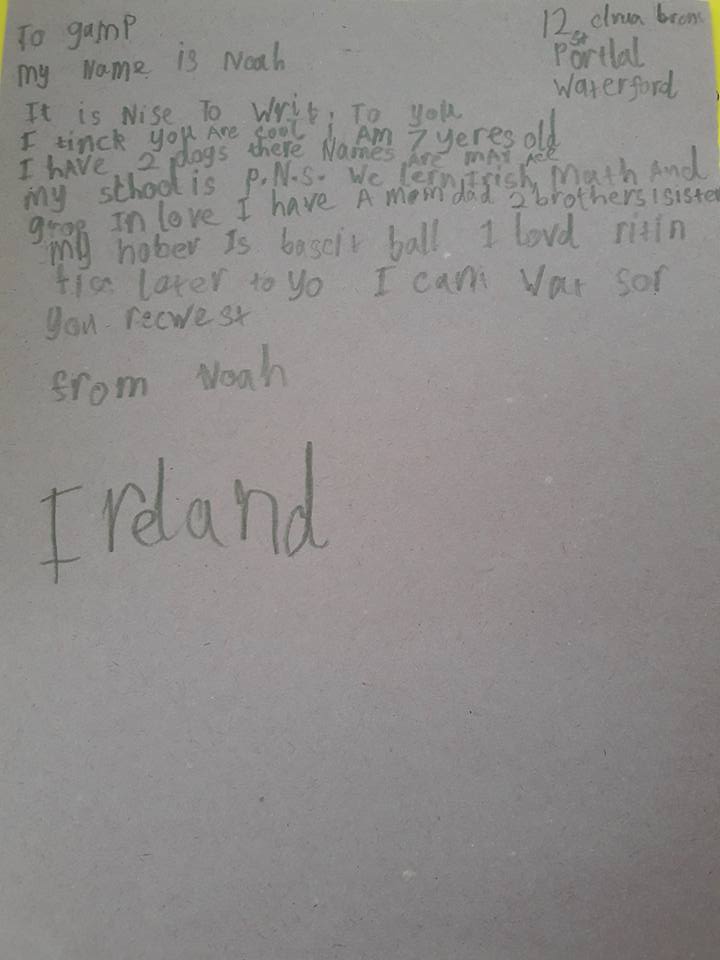 To gamp
12 clnua brom
st
Portlal
Waterford
my Name is Noah
It is Nise To Writ. To you
I tinck you Are cool i Am 7 yeres old
I hAve 2 dogs there Names Are mAx Ace
my sthool is P.N.S. We lern Irish Math And
grop In love I have A mom dad 2 brothers 1 sister
my hober Is bascit ball I lovd ritin
tise later to yo I cant Wat sor
you recwest
from Noah
Ireland